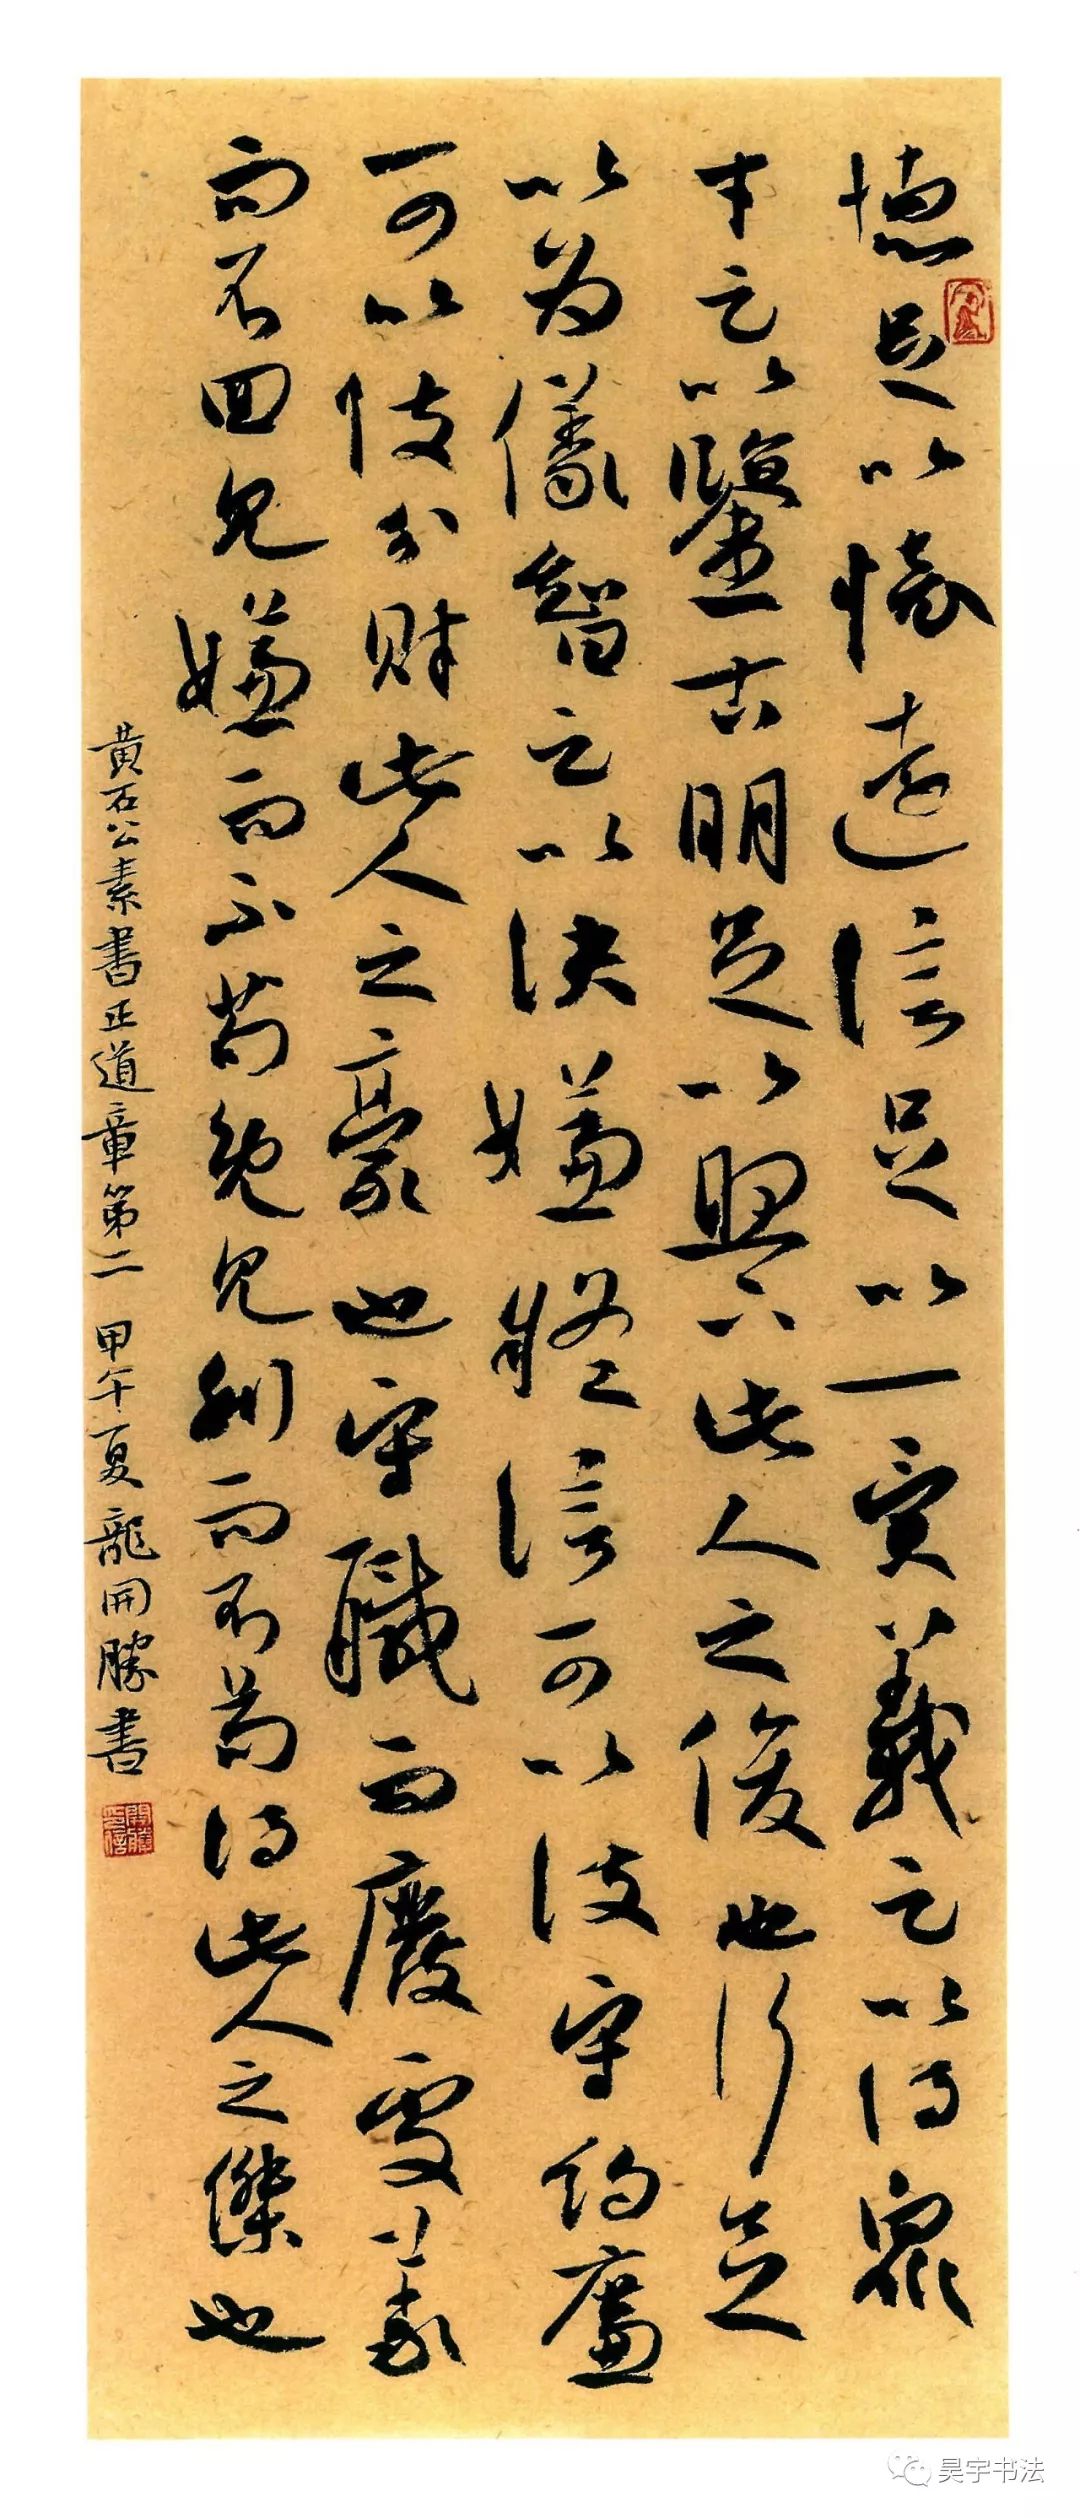 德足以懷遠信足以一異義足以得眾
才足以鑒古明足以照下此人之俊也行足
以為儀智足以決嫌疑信可以使守約廉
可以使分財此人之豪也守職而不廢處義
而不回見嫌而不苟免見利而不苟得此人之傑也
黃石公素書正道章第二 甲午夏龍開勝書
昊宇书法